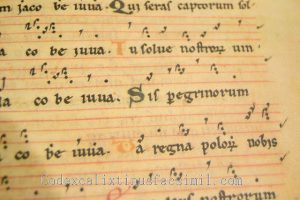 m jaco be iuua. Qui seras captorum sol
co be iuua. Tu solue nostrorum uin
co be iuua. Sis peregrinorum
co be iuuia. Da regna polorum nobis
Codexcalixtinusfacsimil.com
nostrorum